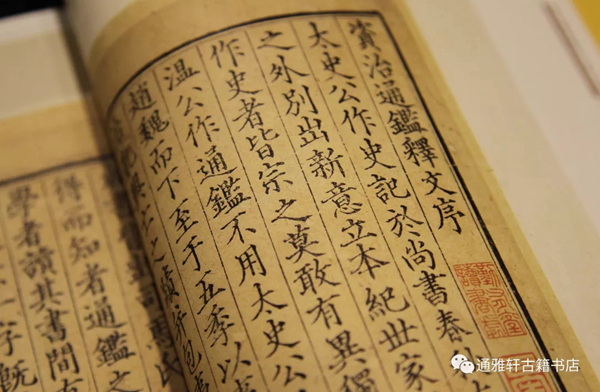 資治通鑑釋文序
太史公作史記於尚書春
之外別出新意立本紀世家
作史者皆宗之莫敢有異
溫公作通鑑不用太史公
趙魏而下至于五季以
之蹟
得而知者通鑑之
學者讀其書間有
字既
通雅轩古籍书店